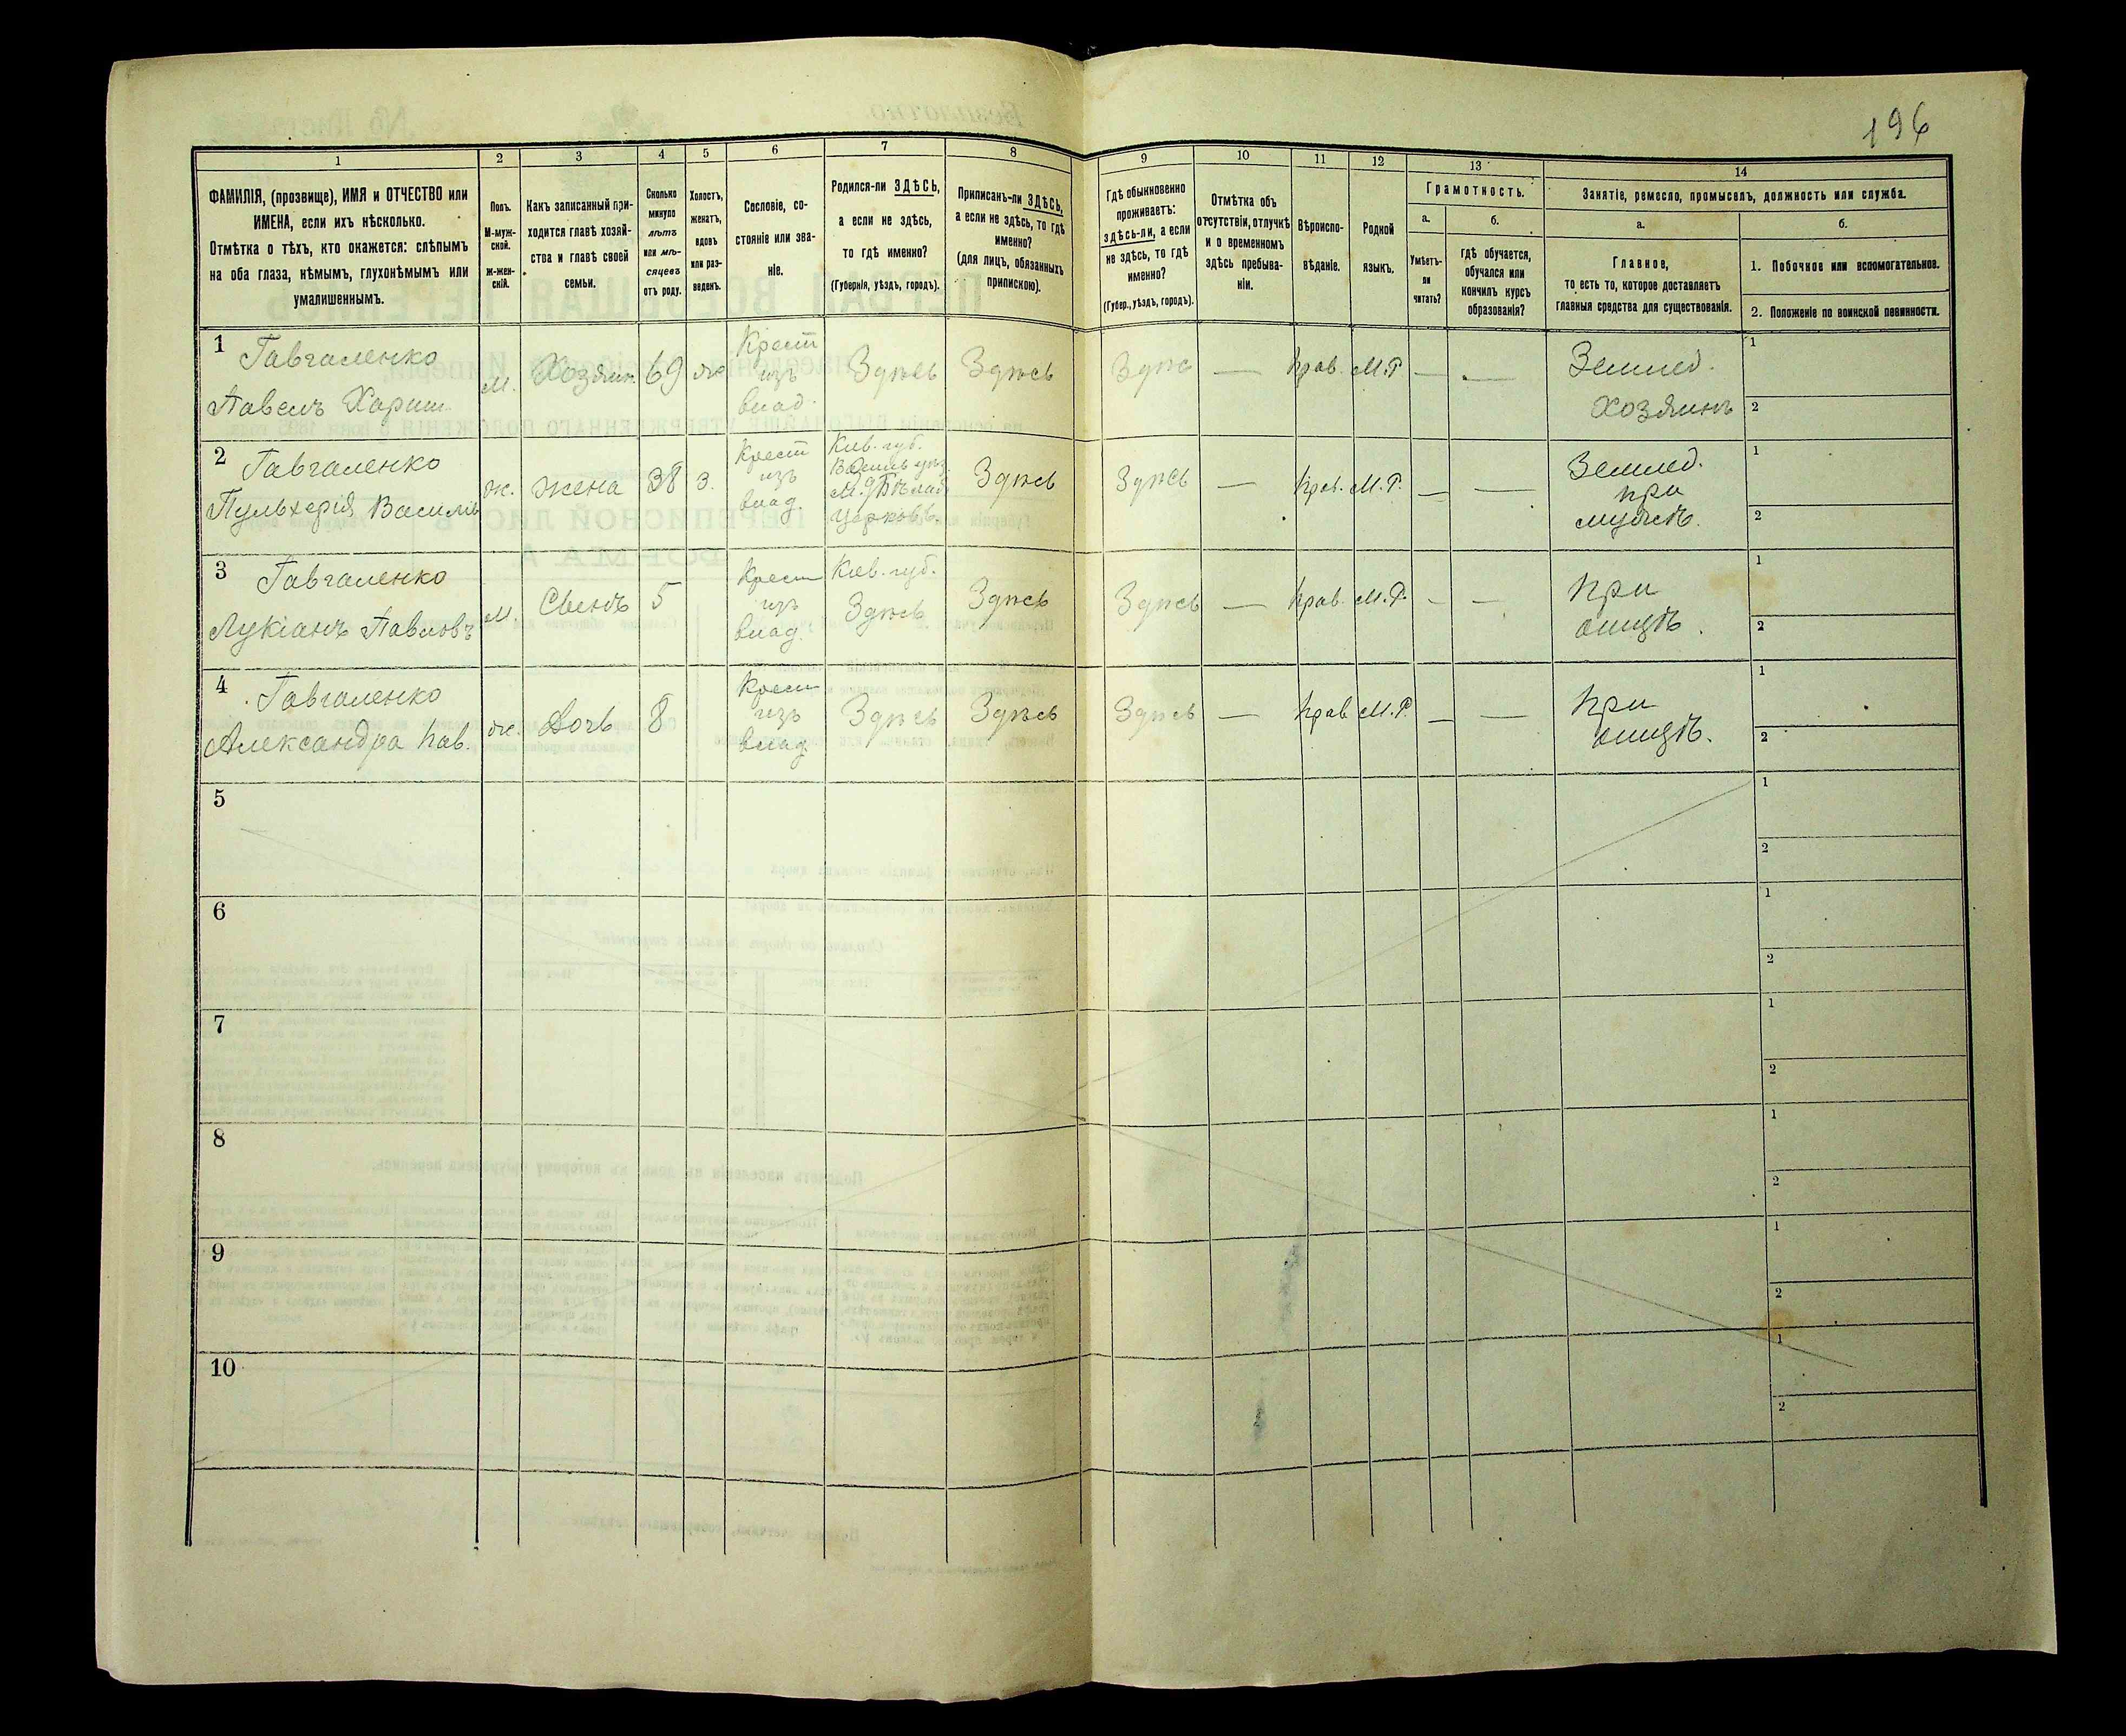 196
1
2
3
4
5
6
7
8
9
10
11
12
13
14
ФАМИЛІЯ, (прозвище), ИМЯ и ОТЧЕСТВО или
ИМЕНА, если ихъ нѣсколько.
Отмѣтка о тѣхъ, кто окажется: слѣпымъ
на оба глаза, нѣмымъ, глухонѣмымъ или
умалишеннымъ.
Полъ.
М-муж-
ской.
ж-жен-
скій.
Какъ записанный при-
ходится главѣ хозяй-
ства и главѣ своей
семьи.
Сколько
минуло
лѣтъ
или мѣ-
сяцевъ
отъ роду.
Холостъ,
женатъ,
вдовъ
или раз-
веденъ.
Сословіе, со-
стояніе или зва-
ніе.
Родился-ли ЗДѢСЬ,
а если не здѣсь,
то гдѣ именно?
(Губернія, уѣздъ, городъ).
Приписанъ-ли ЗДѢСЬ,
а если не здѣсь, то гдѣ
именно?
(для лицъ, обязанныхъ
припискою).
Гдѣ обыкновенно
проживаетъ:
здѣсь-ли, а если
не здѣсь, то гдѣ
именно?
(Губер., уѣздъ, городъ).
Отмѣтка объ
отсутствіи, отлучкѣ
и о временномъ
здѣсь пребыва-
ніи.
Вѣроиспо-
вѣданіе.
Родной
языкъ.
Грамотность.
а.
б.
Умѣетъ-
ли
читать?
гдѣ обучается,
обучался или
кончилъ курсъ
образованія?
Занятіе, ремесло, промыселъ, должность или служба.
а.
б.
Главное,
то есть то, которое доставляетъ
главныя средства для существованія.
1. Побочное или вспомогательное.
2. Положеніе по воинской повинности.
1 Гавгаленко
Павелъ Харит.
м.
Хозяин
69
ж
Крест
изъ
влад.
Здѣсь
Здѣсь
Здѣс
—
Прав.
М.Р
—
—
Землед.
Хозяинъ
1
2
2 Гавгаленко
Пульхерія Василів
ж.
жена
38
з.
Крест
изъ
влад.
Кіев. губ.
Васильк уѣз.
церковь.
Здѣсь
Здѣсь
—
Прав.
М.Р.
—
—
Землед.
при
мужѣ.
1
2
3 Гавгаленко
Лукіанъ Павловъ
м.
Сынъ
5
Крест
изъ
влад.
Кіев. губ.
Здѣсь
Здѣсь
Здѣсь
—
Прав.
М.Р.
—
—
При
отцѣ.
1
2
4 Гавгаленко
Александра Пав.
ж.
Дочь
8
Крест
изъ
влад.
Здѣсь
Здѣсь
Здѣсь
—
Прав
М.Р.
—
—
При
отцѣ.
1
2
5
1
2
6
1
2
7
1
2
8
1
2
9
1
2
10
1
2